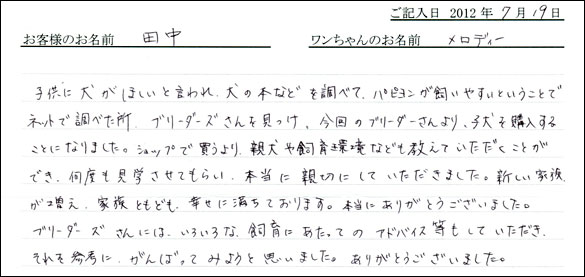 ご記入日 2012年7月19日
お客様のお名前 田中 ワンちゃんのお名前 メロディー
子供に犬がほしいと言われ、犬の本などを調べて、パピヨンが飼いやすいということで
ネットで調べた所、ブリーダーズさんを見つけ、今回のブリーダーさんより、子犬を購入する
ことになりました。ショップで買うより、親犬や飼育環境なども教えていただくことが
でき、何度も見学させてもらい、本当に親切にしていただきました。新しい家族
が増え、家族ともども、幸せに満ちております。本当にありがとうございました。
ブリーダーズさんには、いろいろな、飼育にあたってのアドバイス等もしていただき、
それを参考に、がんばってみようと思いました。ありがとうございました。